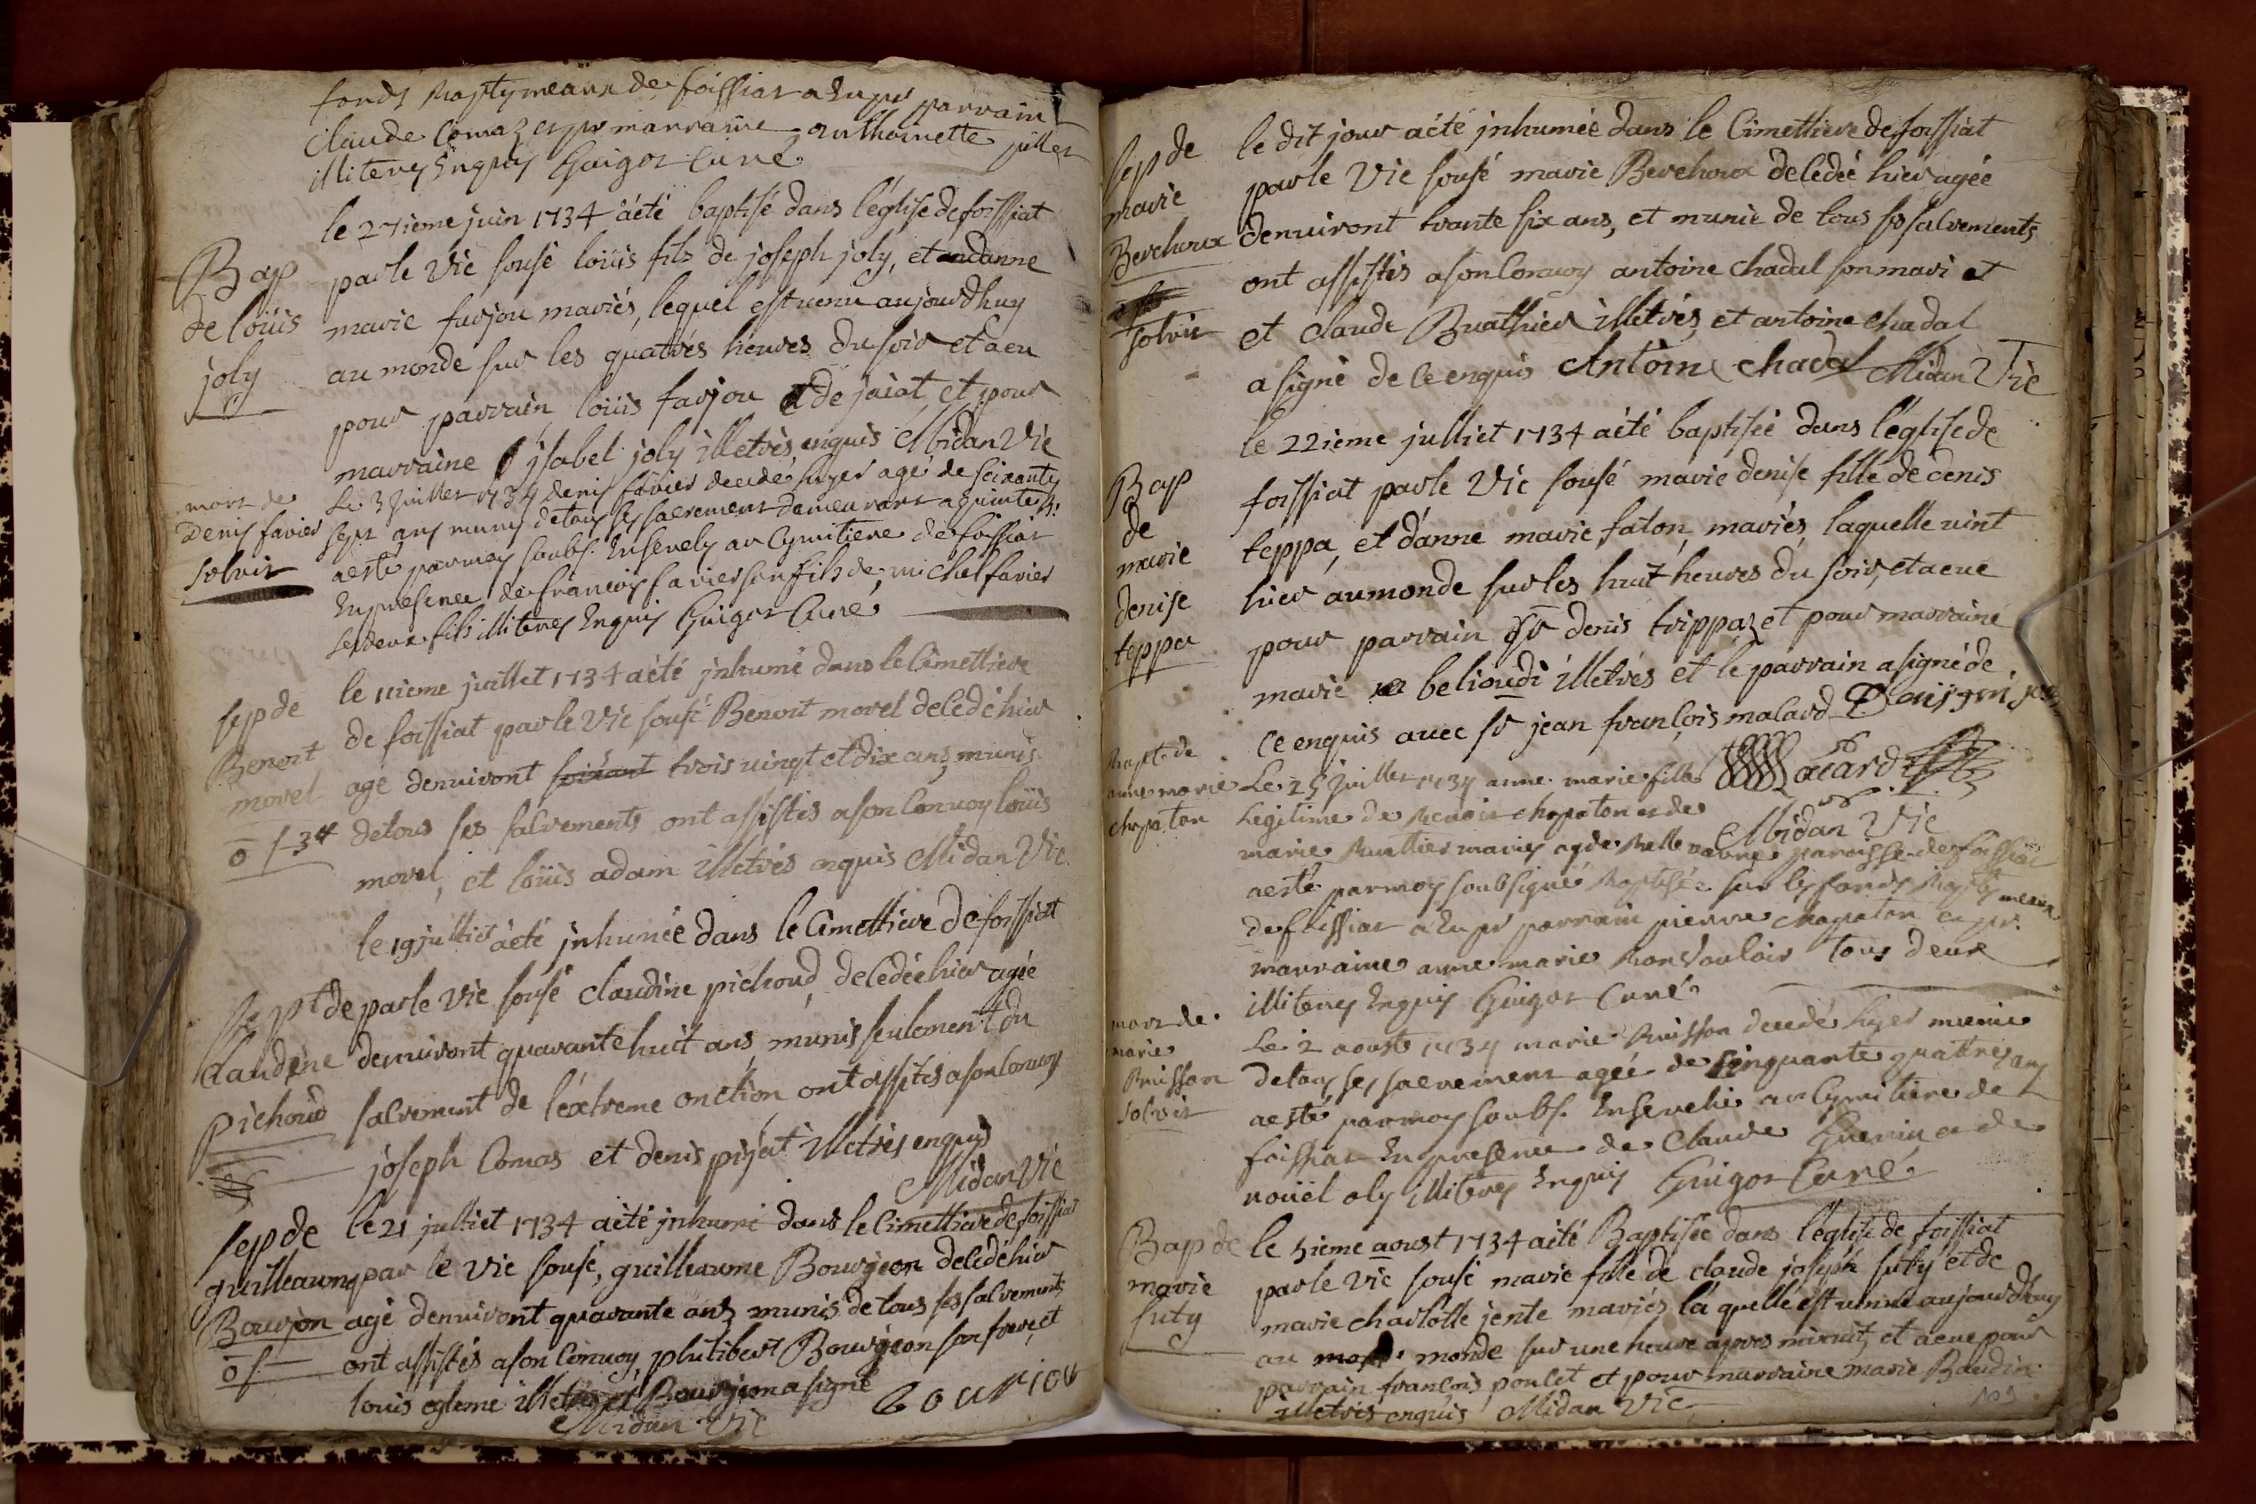 fonds baptymeaux de foissiat a eu pr parrain
Claude Comaz et pr marraine anthoinette pillet
illiterés enquis Guigot Curé
Bap
de loüis
joly
le 27ieme juin 1734 a été baptisé dans l'église de foissiat
par le Vic sousé loüis fils de joseph joly, et danne
marie farjou mariés, lequel est venu aujourdhuy
au monde sur les quatrés heures du soir et a eu
pour parrain loüis farjou de jaiat et pour
marraine jsabel joly illetrés enquis Midan Vic
mort de
Denis favier
solvit
Le 3 juillet 1734 denis favier decedé hyer agé de soixante
sept ans munis de tous ses sacrement demeurant a
a esté par moy soubs. ensevely au Cymitiere de foissiat
En presence de francois favier son fils de michel favier
illiterés Enquis Guigot Curé
sep de
Benoit
morel
le 11ieme juillet 1734 a été jnhumé dans le Cimettiere
de foissiat par le Vic sousé Benoit morel decedé hier
agé denviront soixant trois vingt et dix ans, munis
de tous ses sacrements ont assistés a son Convoy loüis
morel, et loüis adam illetrés enquis Midan Vic
Sept de
Claudine
Pichoud
le 19 julliet a été jnhumée dans le Cimettiere de foissiat
par le Vic sousé claudine pichoud, decedée hier agée
denviront quarante huit ans, munis seulement du
sacrement de l'éxtreme onction ont assistés a son Convoy
joseph Comas et denis pijat illetrés enquis
Midan Vic
sep de
guilleaume
Bourjon
le 21 julliet 1734 a été jnhumé dans le Cimettiere de foissiat
par le Vic sousé, guilleaume Bourjeon decedé hier
agé denviront quarante ans munis de tous ses sacrements
ont assistés a son Convoy, philibert Bourjeon son frere, et
louis egleme illetrés et Bourjeon a signé
Midan Vic
bourjou
sep de
marie
Berchoux
solvit
le dit jour a été jnhumée dans le Cimettiere de foissiat
par le Vic sousé marie Berchoux decedée hier agée
denviront trante six ans, et munie de tous ses sacrements
ont assistés a son Convoy antoine chadal son mari et
et claude Bruathier illetrés, et antoine chadal
a signé de ce enquis Antoine chadal Midan Vic
Bap
de
marie
denise
teppa
le 22ieme julliet 1734 a été baptisée dans l'église de
foissiat par le Vic sousé marie denise fille de denis
teppa, et d'anne marie faton, mariés, laquelle vint
hier au monde sur les huit heures du soir, et a eue
pour parrain Sr denis trippaz et pour marraine
marie belioudi illetrés et le parrain a signé de
ce enquis avec Sr jean françois malard
Midan Vic
Bapt. de
anne marie
chapaton
Le 25 juillet 1734 anne marie fille
Legitime de Benoit chapaton et de
marie Ruattier mariés de paroisse de foissiat
a esté par moy soubsigné Baptisée sur les fonds Baptismeaux
de foissiat a Eu pr parrain pierre chapaton et pr.
marraine anne marie tous deux
illiterés Enquis Guigot Curé
mort de
marie
Buisson
solvit
Le 2 aoust 1734 marie Buisson decedé hyer munie
de tous ses sacrement agée de Cinquante quattres ans
a esté par moy soubs. Ensevelie au Cymitiere de
foissiat En presence de Claude Guenin et de
noüel oly illiterés Enquis Guigot Curé
Bap de
marie
suty
le 5ieme aoust 1734 a été Baptisée dans l'église de foissiat
par le Vic sousé marie fille de claude joseph suty et de
marie charlotte jente mariés, la quelle est venue aujourdhuy
au monde sur une heure apres minuit, et a eue pour
parrain francois poulet et pour marraine marie Baudin
illetrés enquis Midan Vic